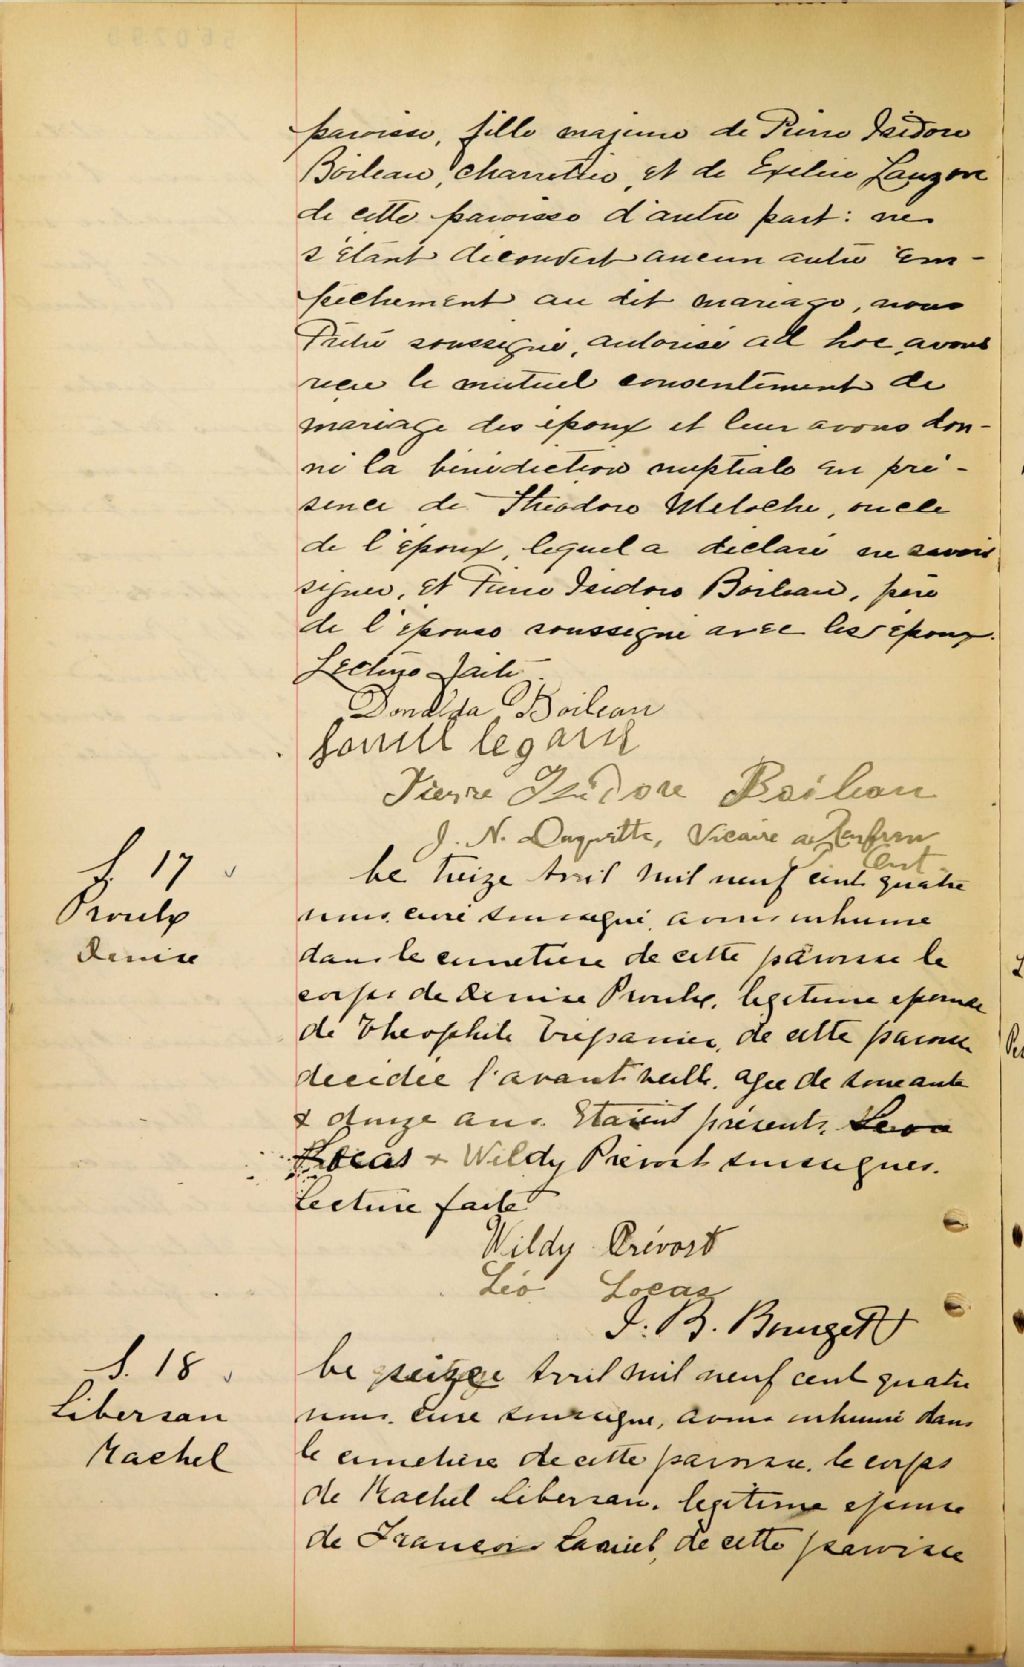 paroisse, fille majeure de Pierre Isidore
Boileau, charretier, et de Exelire Lauzon
de cette paroisse d'autre part: ne
s'étant découvert aucun autre em-
pêchement au dit mariage, nous
Prêtre soussigné, autorisé ad hoc, avons
reçu le mutuel consentement de
mariage des époux et leur avons don-
né la bénédiction nuptiale en pré-
sence de Théodore Meloche, oncle
de l'époux, lequel a déclaré ne savoir
signer, et Pierre Isidore Boileau, père
de l'épouse soussigné avec les époux.
Lecture faite.
Donalda Boileau
Pierre Isidore Boileau
J. N. Duquette, Vicaire
S. 17
Proulx
Denise
Le treize Avril mil neuf cent quatre
nous curé soussigné, avons inhumé
dans le cimetière de cette paroisse le
corps de Denise Proulx, légitime épouse
de Théophile Trépanier, de cette paroisse
décédée l'avant veille, agée de soixante
& douze ans. Etaient présents, Léo
Locas & Wildy Prévost soussignés.
Lecture faite
Wildy Prévost
Léo Locas
S. 18
Libersan
Rachel
Le seize Avril mil neuf cent quatre
nous, curé soussigné, avons inhumé dans
le cimetière de cette paroisse, le corps
de Rachel Libersan, légitime épouse
de François Laniel, de cette paroisse